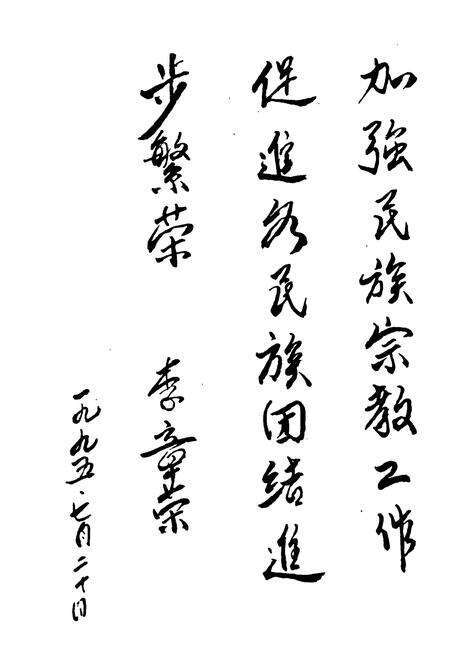 加強民族宗教工作
促進各民族团结進
步繁荣
李章荣
一九九五、七月二十日